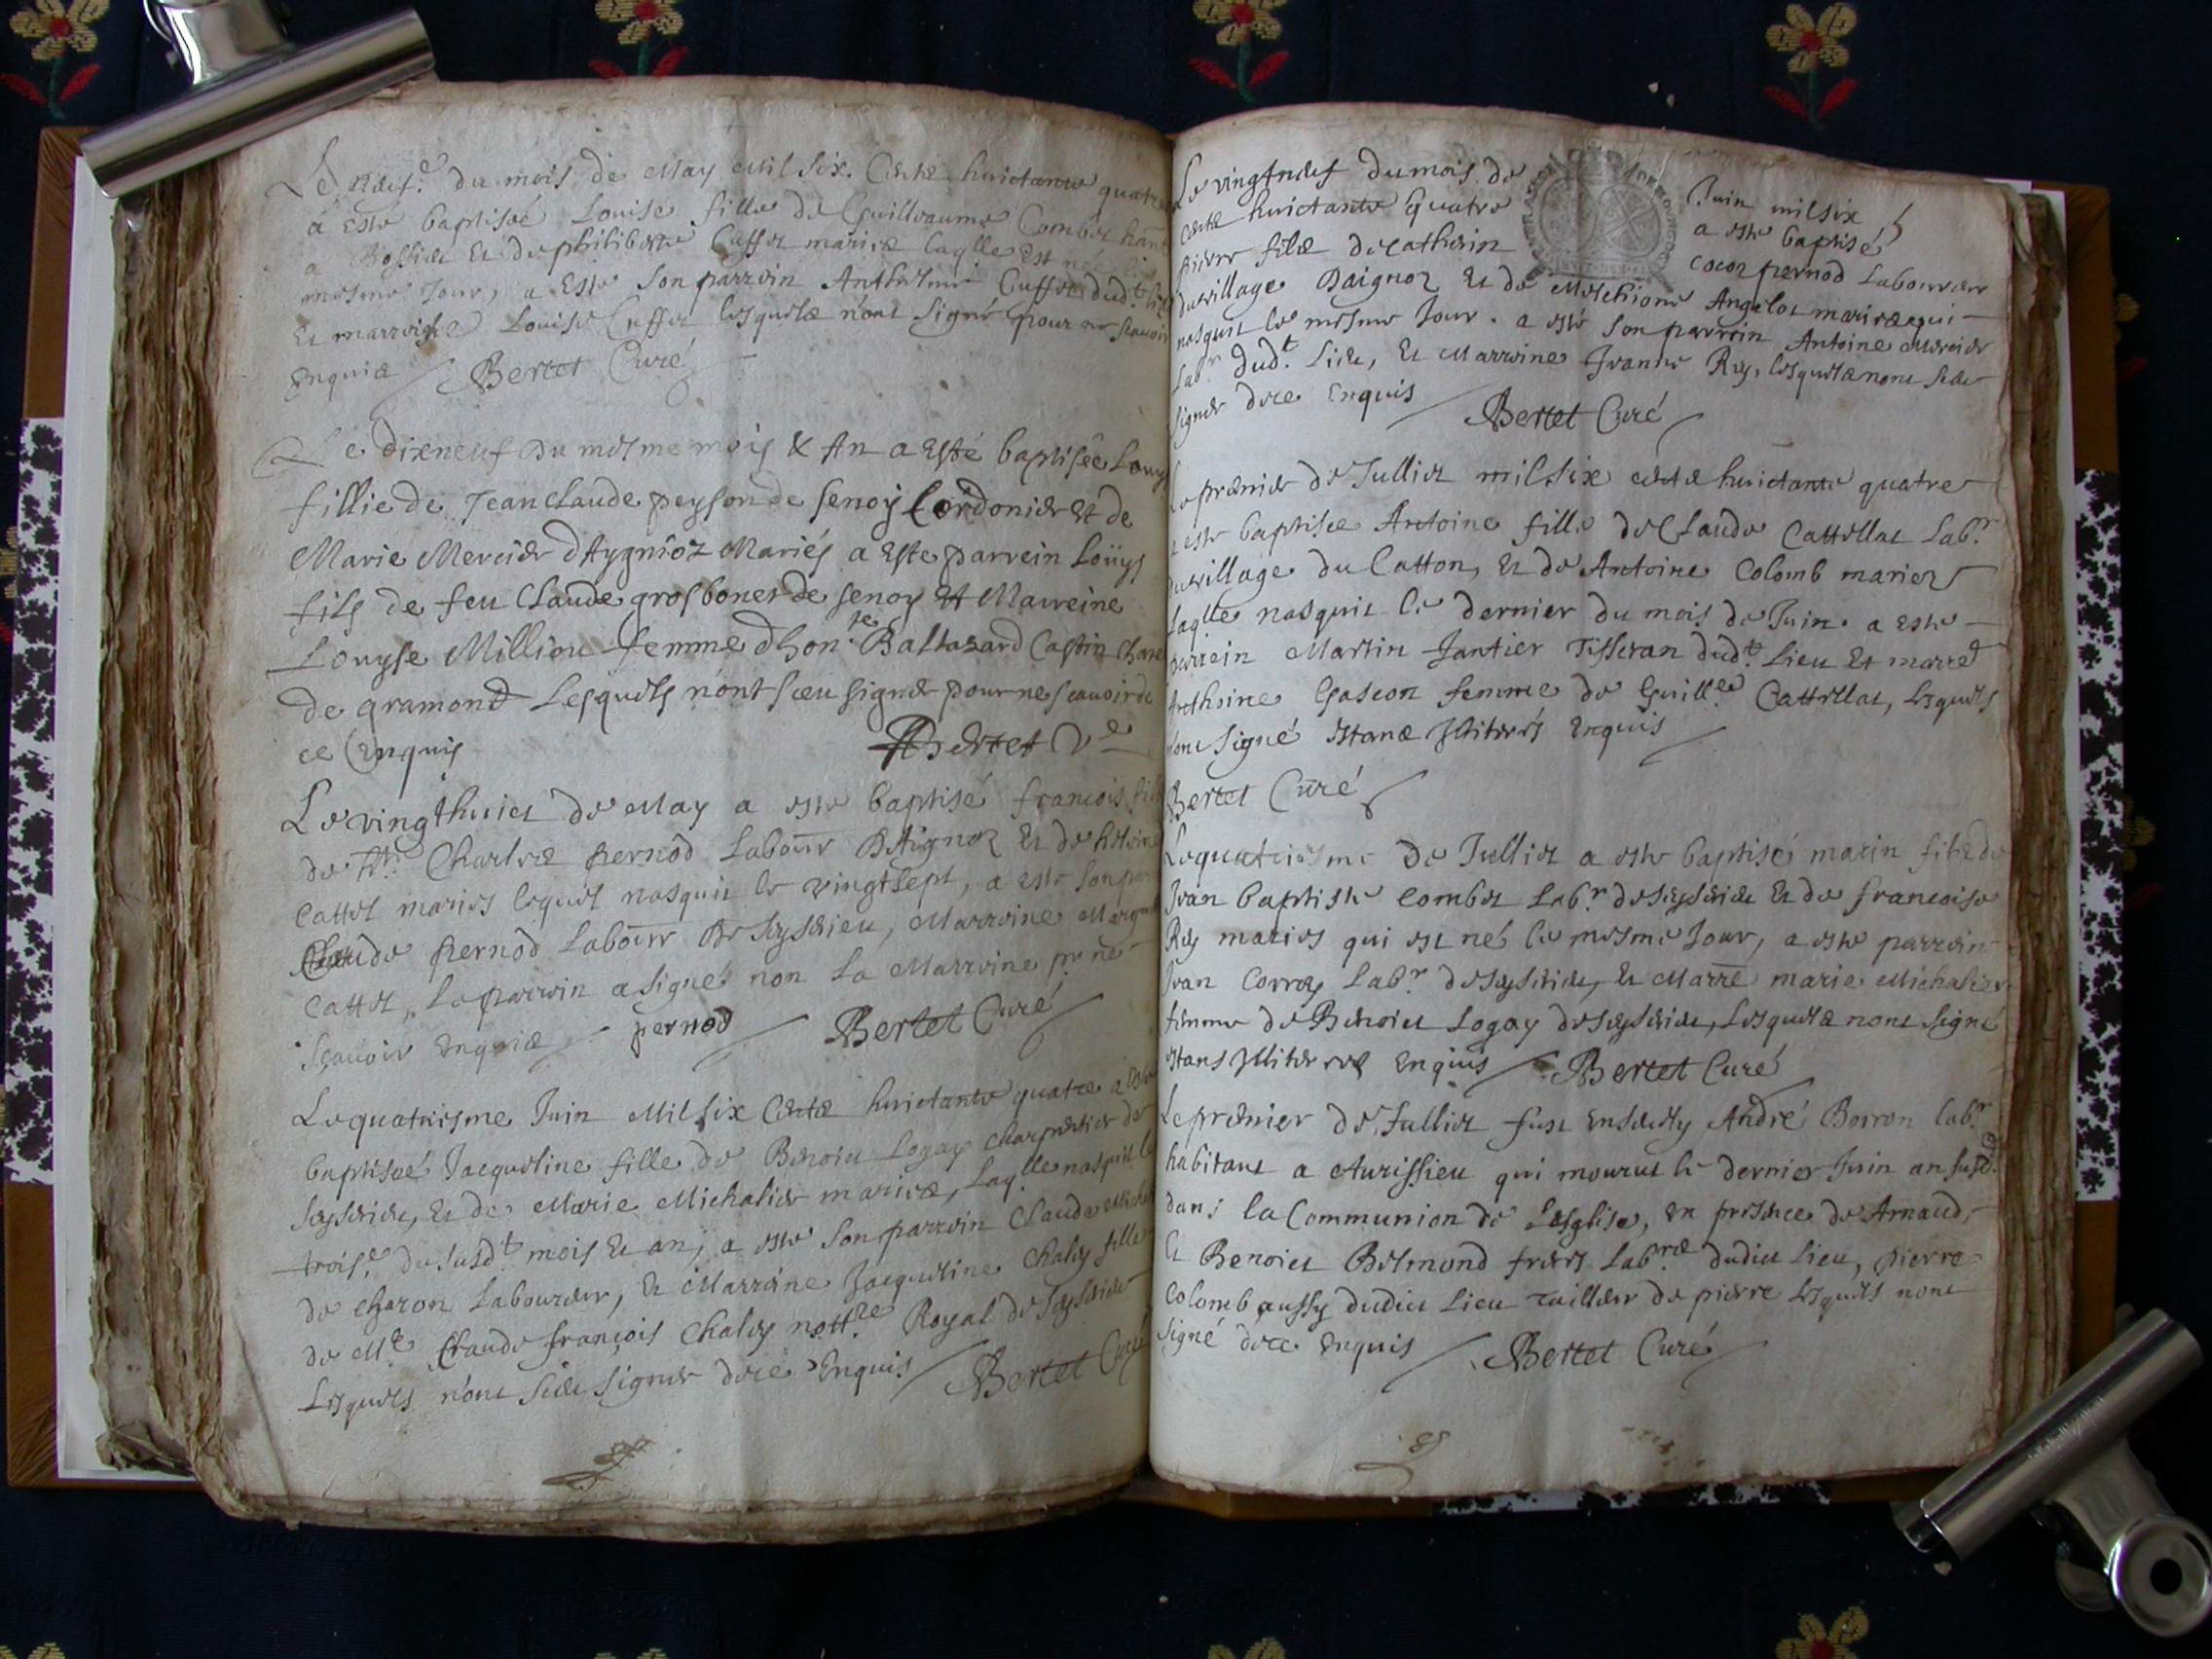 Le neuf.e du mois de May mil six Cents huictante quatre
a este baptiseé Louise fille de Guilleaume Combet
a Bossieu et de philiberte Cuffet mariés laqlle est née
mesme Jour, a este son parrein Anthelme Cuffet dud.t
et marreine Louise Cuffet lesquels n'ont signé pour ne scavoir
Enquis Bertet Curé
Le dixneuf du mesme mois & An a esté baptisée Louyse
fillie de Jean Claude peyson de senoy Cordonier et de
Marie Mercier d'Aygnoz Mariés a este parrein Loüys
fils de feu Claude grosbonet de senoy et Marreine
Louyse Milliou femme d'hon.te Baltazard Castin
de gramond Lesquels n'ont sceu signer pour ne scavoir de
ce Enquis ABertet V.e
Le vingthuict de May a este baptisé francois fils
de Charles pernod Labour D'Aignoz et de
Cattet mariés lequel nasquit le vingtsept, a este son
Claude pernod Labour de Seyssieu, Marreine
Cattet, Le parrein a signé non la Marreine pr ne
scavoir Enquis pernod Bertet Curé
Le quatriesme Juin Mil six Cents huictante quatre a este
baptiseé Jacqueline fille de Benoict Logay charpentier de
Seysérieu, et de Marie Michalier mariés, laq.lle nasquit le
trois.e du susd.t mois et an, a este son parrein Claude
de charon Laboureur, et Marreine Jacqueline Chaley fille
de M.e Claude françois Chaley nott.re Royal de Seysérieu
Lesquels n'ont sceu signer de ce Enquis Bertet Curé
Le vingtneuf du mois de Juin mil six
Cents huictante quatre a este baptisé
pierre fils de Catherin pernod Laboureur
du village Daignoz et de Melchione Angelot mariés qui
nasquit le mesme Jour. a esté son parrein Antoine Mercier
Lab.r dud.t Lieu, et Marreine Jeanne Rey, lesquels n'ont sceu
signer de ce Enquis Bertet Curé
Le premier de Julliet mil six cents huictante quatre
a este baptisée Antoine fille de Claude Cattellat Lab.r
du village du Catton, et de Antoine Colomb mariez
laq.lle nasquit le dernier du mois de Juin. a este
parrein Martin Jantier Tisseran dud.t Lieu et marre.e
Anthoine Gascon femme de Guill.e Cattellat, lesquels
n'ont signé estans Illiterés Enquis
Bertet Curé
Le quatriesme de Julliet a este baptisé marin fils de
Jean baptiste Combet Lab.r de Seysérieu et de francoise
Rey mariés qui est né le mesme Jour, a este parrein
Jean Correy Lab.r de Seysérieu, et Marre marie Michalier
femme de Benoict Logay de Seysérieu, Lesquels n'ont signé
estans Illiterés Enquis Bertet Curé
Le premier de Julliet fust Ensevely André Borron lab.r
habitant a Aurissieu qui mourut le dernier Juin an susd.
dans la Communion de l'esglise, en presence de Arnaud,
et Benoict Belmond freres Lab.rs dudict Lieu, pierre
Colomb aussy dudict Lieu tailleur de pierre Lesquels n'ont
signé de ce Enquis Bertet Curé